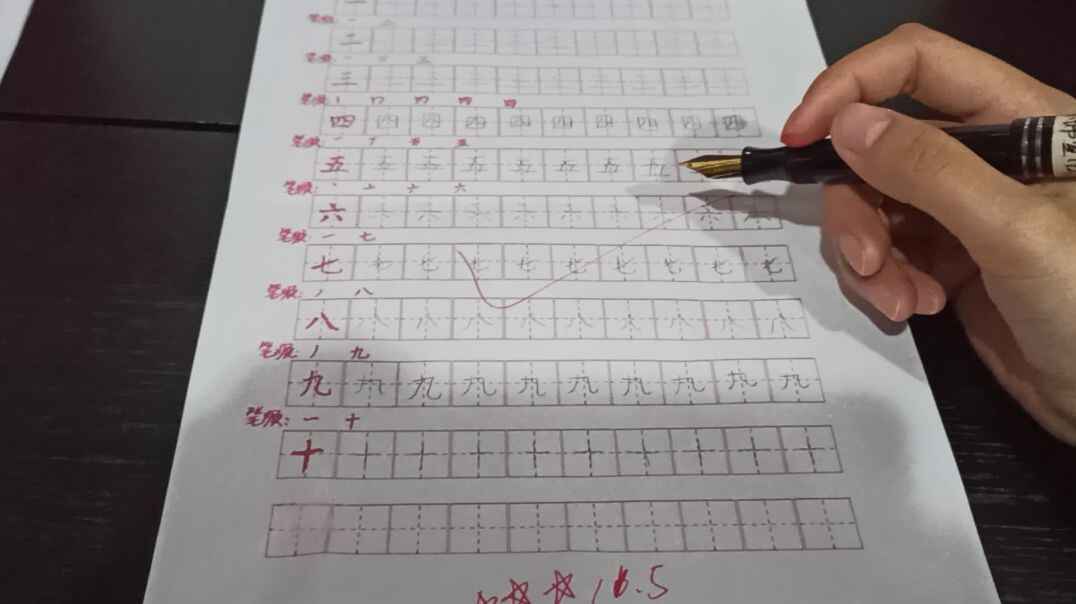 笔顺: 一 二
二 二 二 二 二 二 二 二 二 二
笔顺: 一 二 三
三 三 三 三 三 三 三 三 三 三
笔顺: 丨 冂
四 四 四 四 四 四 四 四 四 四
笔顺: 一 丅 五
五 五 五 五 五 五 五 五
笔顺: 丶 亠 六
六 六 六 六 六 六 六 六 六 六
笔顺: 一 七
七 七 七 七 七 七 七 七 七 七
笔顺: 丿 八
八 八 八 八 八 八 八 八 八 八
笔顺: 丿 九
九 九 九 九 九 九 九 九 九 九
笔顺: 一 十
十 十 十 十 十 十 十 十 十 十